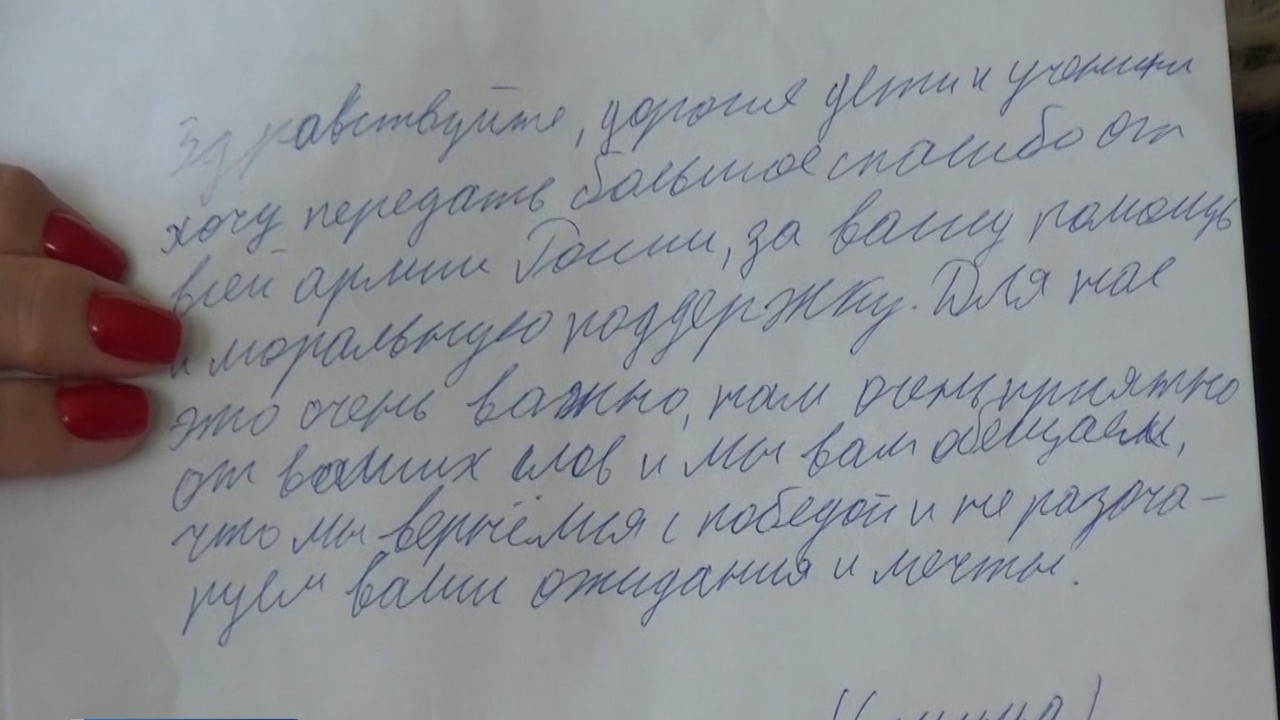 Здравствуйте, дорогие дети и ученики
хочу передать большое спасибо от
всей армии России, за вашу помощь
и моральную поддержку. Для нас
это очень важно, нам очень приятно
от ваших слов и мы вам обещаем,
что мы вернёмся с победой и не разоча-
руем ваши ожидания и мечты.